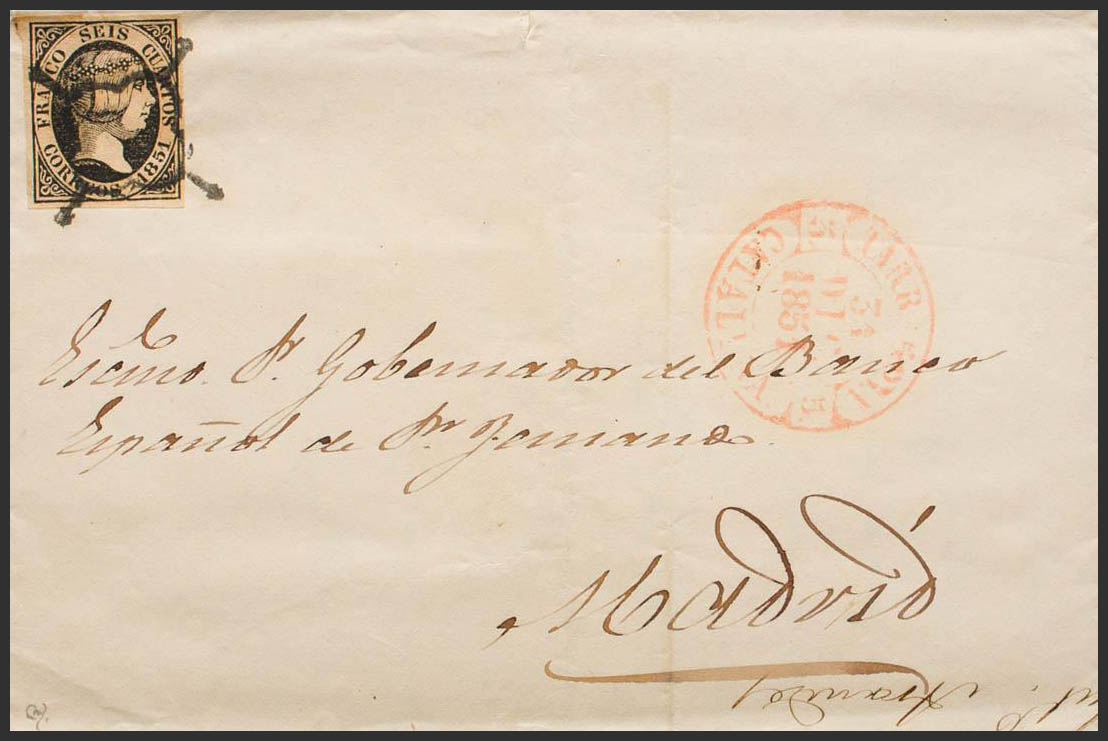 FRANCO SEIS CUARTOS
CORREOS 1851
31
DIC
1851
Escmo. Sr. Gobernador del Banco
Español de Sn. Fernando.
Madrid